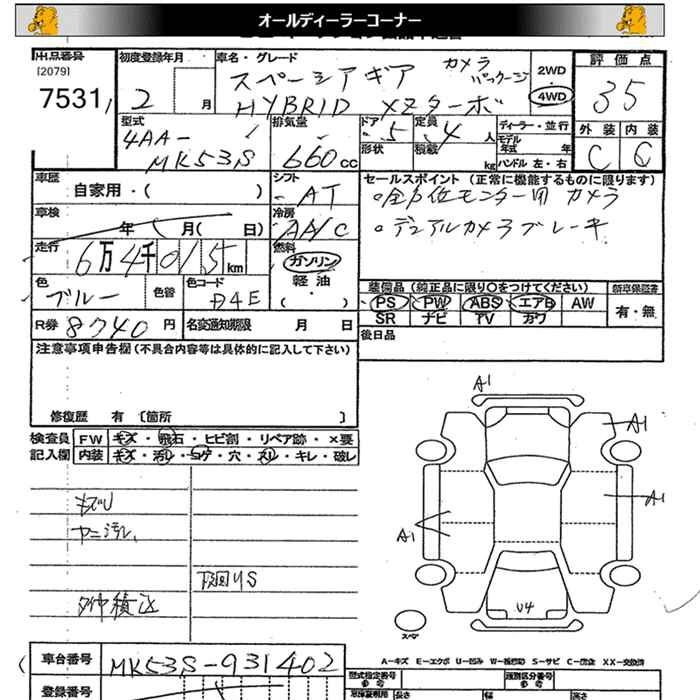 オールディーラーコーナー
出品番号
[2079]
7531
初度登録年月
2 月
車名・グレード
スペーシアギア カメラパッケージ
HYBRID XZターボ
2WD
4WD
評価点
3.5
外装 内装
C C
型式
4AA-
MK53S
排気量
660cc
ドア
5
定員
4人
形状
積載
kg
ディーラー・並行
モデル年式 年
ハンドル 左・右
車歴
自家用・( )
シフト
AT
セールスポイント (正常に機能するものに限ります)
全方位モニター用カメラ
デュアルカメラブレーキ
車検
年 月( 日)
冷房
AA/C
走行
6万4千015km
燃料
ガソリン
軽油
( ・ )
色
ブルー
色替
色コード
装備品 (純正品に限り○をつけてください)
PS PW ABS エアB AW
SR ナビ TV カワ
新車保証書
有・無
R券 8740円
名変通知期限 月 日
後日品
注意事項申告欄 (不具合内容等は具体的に記入して下さい)
修復歴 有 〔箇所 〕
検査員
記入欄
FW キズ・飛石・ヒビ割・リペア跡・×要
内装 キズ・汚れ・コゲ・穴・スレ・キレ・破レ
ヤニ汚レ
下回りS
A1
A1
A1
A1
U4
スペア
A-キズ E-エクボ U-凹み W-補修跡 S-サビ C-腐食 XX-交換済
車台番号
MK53S-931402
登録番号
型式指定番号
参考
類別区分番号
参考
長さ
幅
高さ